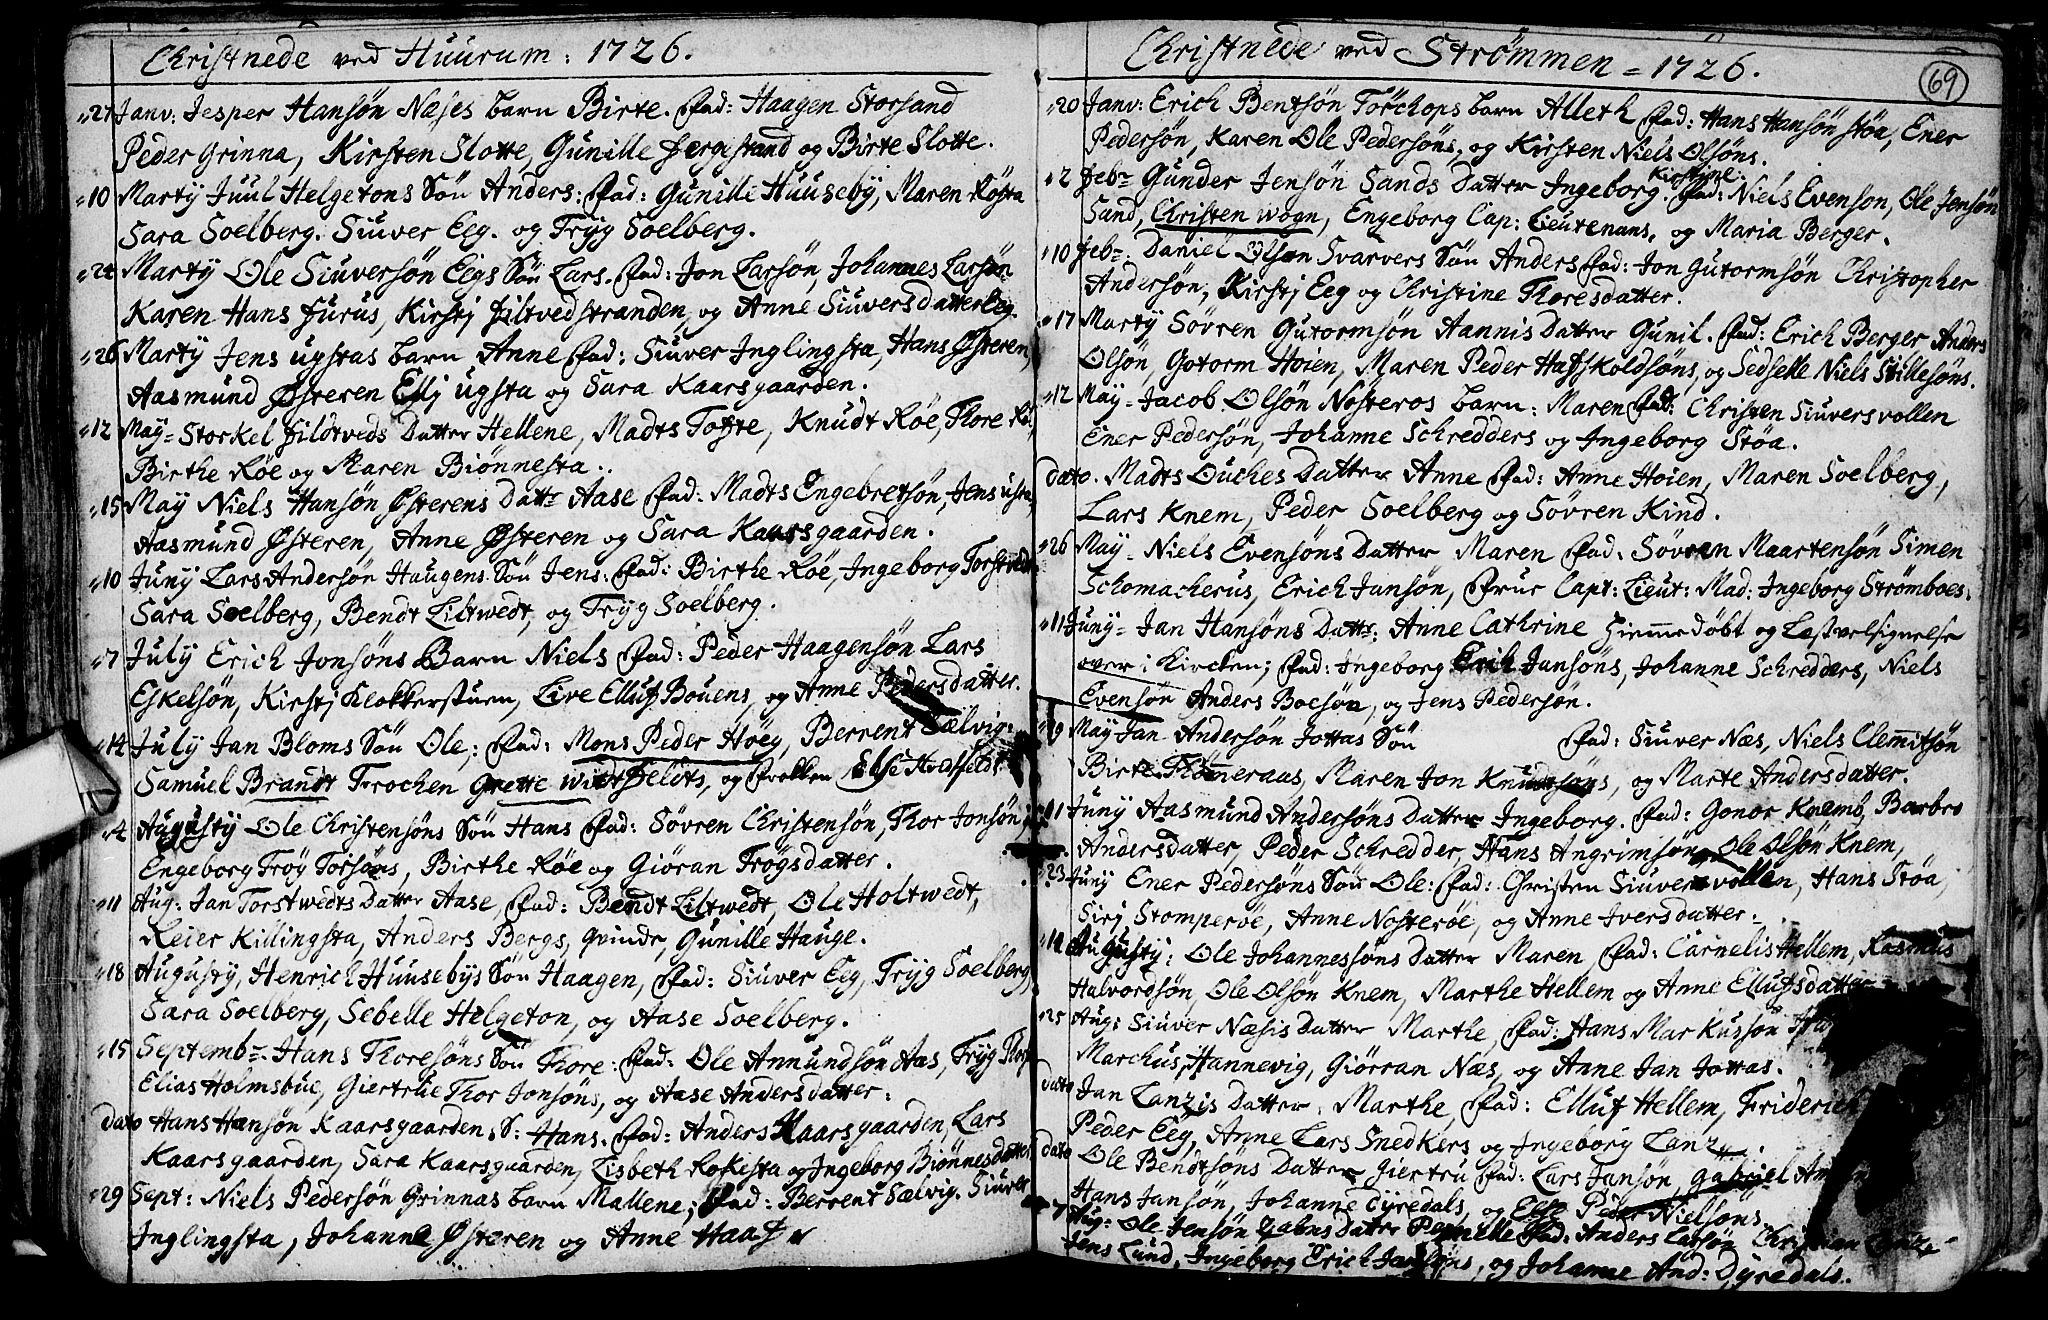 Christnede ved Huurum: 1726.
27 Janv: Jesper Hansøn Næses barn Birte. Fad: Haagen Storsand
Peder Grinna, Kirsten Slotte, Gunille Sergestand og Birte Slotte.
10 Marty Juul Helgetons Søn Anders: Fad: Gunille Huuseby, Maren Røsta
Sara Soelberg. Siuver Eeg. og Tryg Soelberg.
24 Marty Ole Siuversøn Eegs Søn Lars. Fad: Jon Larsøn, Johannes Larsøn
Karen Hans Furus, Kirstj Filtvedstranden, og Anne Siuversdatter Eeg.
26 Marty Jens ugstas barn Anne Fad: Siuver Inglingsta, Hans Østeren,
Aasmund Østeren Ellj ugsta og Sara Kaarsgaarden.
12 May= Storkel Filøtveds Datter Hellene, Madts Tofte, Knudt Røe, Thore Rø,
Birthe Røe og Maren Biønnesta.
15 May Niels Hansøn Østerens Dattr Aase Fad: Madts Engebretsøn, Jens usta,
Aasmund Østeren, Anne Østeren og Sara Kaarsgaarden.
10 Juny Lars Andersøn Haugens Søn Jens. Fad: Birthe Røe, Ingeborg Torstvedt
Sara Soelberg, Bendt Liltwedt, og Tryg Soelberg.
7 July Erich Jonsøns Barn Niels Fad: Peder Haagensøn Lars
Eskelsøn, Kirstj Klokkerstuen, Live Elluf Bouens, og Anne Pedersdatter.
14 July Jan Bloms Søn Ole; Fad: Mons Peder Høeg, Berrent Sælvig:
Samuel Brandt Frochen Grette Widtfeldts, og Frollen Else Hvidtfeldt
4 Augusty Ole Christensøns Søn Hans Fad: Søvren Christensøn, Thor Jonsøn,
Engeborg Trøy Torsøns, Birthe Røe og Giøran Trøgsdatter.
11 Aug: Jan Torstwedts Datter Aase, Fad: Bendt Liltwedt, Ole Holtwedt,
Reier Killingsta, Anders Bergs, Qvinde, Gunille Hauge.
18 Augusty, Henrich Huusebys Søn Haagen, Fad: Siuver Eeg, Tryg Soelberg,
Sara Soelberg, Sebelle Helgeton, og Aase Soelberg.
15 Septembr: Hans Thoresøns Søn Thore: Fad: Ole Annundsøn Aas, Tryg Thor
Elias Holmsbue, Giertrue Thor Jonsøns, og Aase Andersdatter:
Dato Hans Hansøn Kaarsgaardens S: Hans. Fad: Anders Kaarsgaarden, Lars
Kaarsgaarden, Sara Kaarsgaarden, Lisbeth Rokesta og Ingeborg Biønnesdatter
29 Sept: Niels Pedersøn Grinnas barn Mallene; Fad: Berrent Sælvig. Siuver
Inglingsta, Johanne Østeren og Anne Haaf
Christnede ved Strømmen = 1726.
69
20 Janv: Erich Bentsøn Torchops barn Alleth Fad: Hans Hansøn støa, Ener
Pedersøn, Karen Ole Pedersøns, og Kirsten Niels Olsøns.
2 Febr Gunder Jensøn Sands Datter Ingeborg Kirstine. Fad: Niels Evenson, Ole Jensøn
Sand, Christen Wogn, Engeborg Cap: Lieutenans, og Maria Berger.
10 Febr: Daniel Olsøn Svarvers Søn Anders Fad: Jon Gutormsøn Christopher
Andersøn, Kirstj Eeg og Christine Thoresdatter.
17 Marty Søvren Gutormsøn Aannis Datter Gunil. Fad: Erich Berger Anders
Olsøn, Gotorm Høien, Maren Peder Hafskoldsøns, og Sedselle Niels Stillesøns.
12 May= Jacob Olsøn Nosterøs barn: Maren Fad: Christen Siuversvollen
Ener Pedersøn, Johanne Schredders og Ingeborg Støa.
Dato. Madts Ouches Datter Anne Fad: Anne Høien, Maren Soelberg,
Lars Knem, Peder Soelberg og Søvren Kind.
26 May= Niels Evensøns Datter Maren Fad: Søvren Maartensøn Simen
Schomacherus, Erich Jansøn, Frue Capt: Lieut: Mad: Ingeborg Strømboes.
11 Juny= Jan Hansøns Dattr: Anne Cathrine Hiemmedøbt og Læst velsignelse
over i Kircken; Fad: Ingeborg Erich Jansøns, Johanne Schredders, Niels
Evensøn Anders Boesøn, og Jens Pedersøn.
19 May Jan Andersøn Jottas Søn Fad: Siuver Næs, Niels Clemmitsøn
Birte Tømmeraas, Maren Jon Knudtsøns, og Marte Andersdatter.
11 Juny Aasmund Andersøns Datter Ingeborg. Fad: Gonor Knemb, Barbro
Andersdatter, Peder Schredder, Hans Angrimsøn, Ole Olsøn Knem,
23 Juny Ener Pedersøns Søn Ole: Fad: Christen Siuversvollen, Hans Støa,
Sirj Stomperøe, Anne Nosterøe, og Anne Iversdatter:
14 Augusty: Ole Johannessøns Datter Maren, Fad: Carnelis Hellem, Rasmus
Halvordsøn, Ole Olsøn Knem, Marthe Hellem og Anne Ellufsdatter
25 Aug: Siuver Næsis Datter Marthe, Fad: Hans Markussøn
Marchus, Hannevig, Giørran Næs, og Anne Jan Jottas.
dato Jan Lanzis Datter, Marthe, Fad: Elluf Hellem, Friderich
Peder Eeg, Anne Lars Snedkers og Ingeborg Lanz
dato Ole Bendtsøns Datter Giertru Fad: Lars Jansøn, Gabriel
Hans Jansøn, Johanne Dyredals, og Else Peder Nielsøns.
7 Aug: Ole Jensøn Zahns Datter Pernelle Fad: Anders Larsøn, Christian Lanz
Jens Lund, Ingeborg Erich Jansøns, og Johanne And: Dyredals.